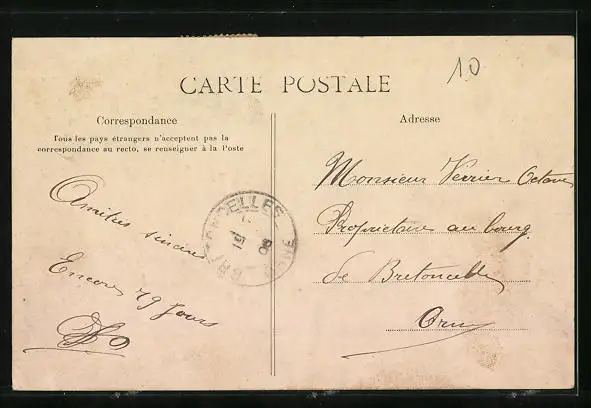 CARTE POSTALE
10
Correspondance
Tous les pays étrangers n'acceptent pas la
correspondance au recto, se renseigner à la Poste
Adresse
Amitiés sincères
Encore 79 jours
Monsieur Verrier Octave
Propriétaire au bourg
de Bretoncelles
Orne
BRETONCELLES
ORNE